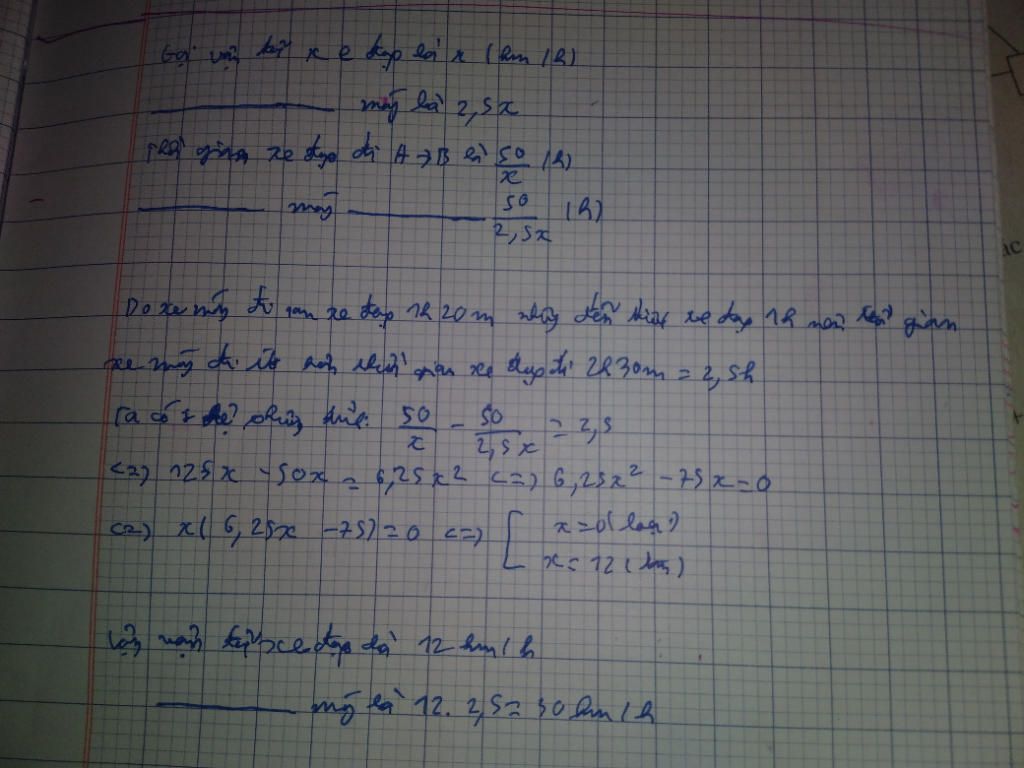 Gọi vận tốc xe đạp là x (km/h)
———— máy là 2,5x
Thời gian xe đạp đi A→B là 50/x (h)
——— máy ———— 50/2,5x (h)
Do xe máy đi sau xe đạp 1h20m nhưng đến xe đạp 1h nên thời gian
xe máy đi ít hơn thời gian xe đạp đi 2h30m = 2,5h
Ta có phương trình: 50/x - 50/2,5x = 2,5
<=> 125x - 50x = 6,25x² <=> 6,25x² - 75x = 0
<=> x(6,25x - 75) = 0 <=> [ x = 0 (loại)
x = 12 (tm)
Vậy vận tốc xe đạp là 12 km/h
———— máy là 12. 2,5 = 30 km/h